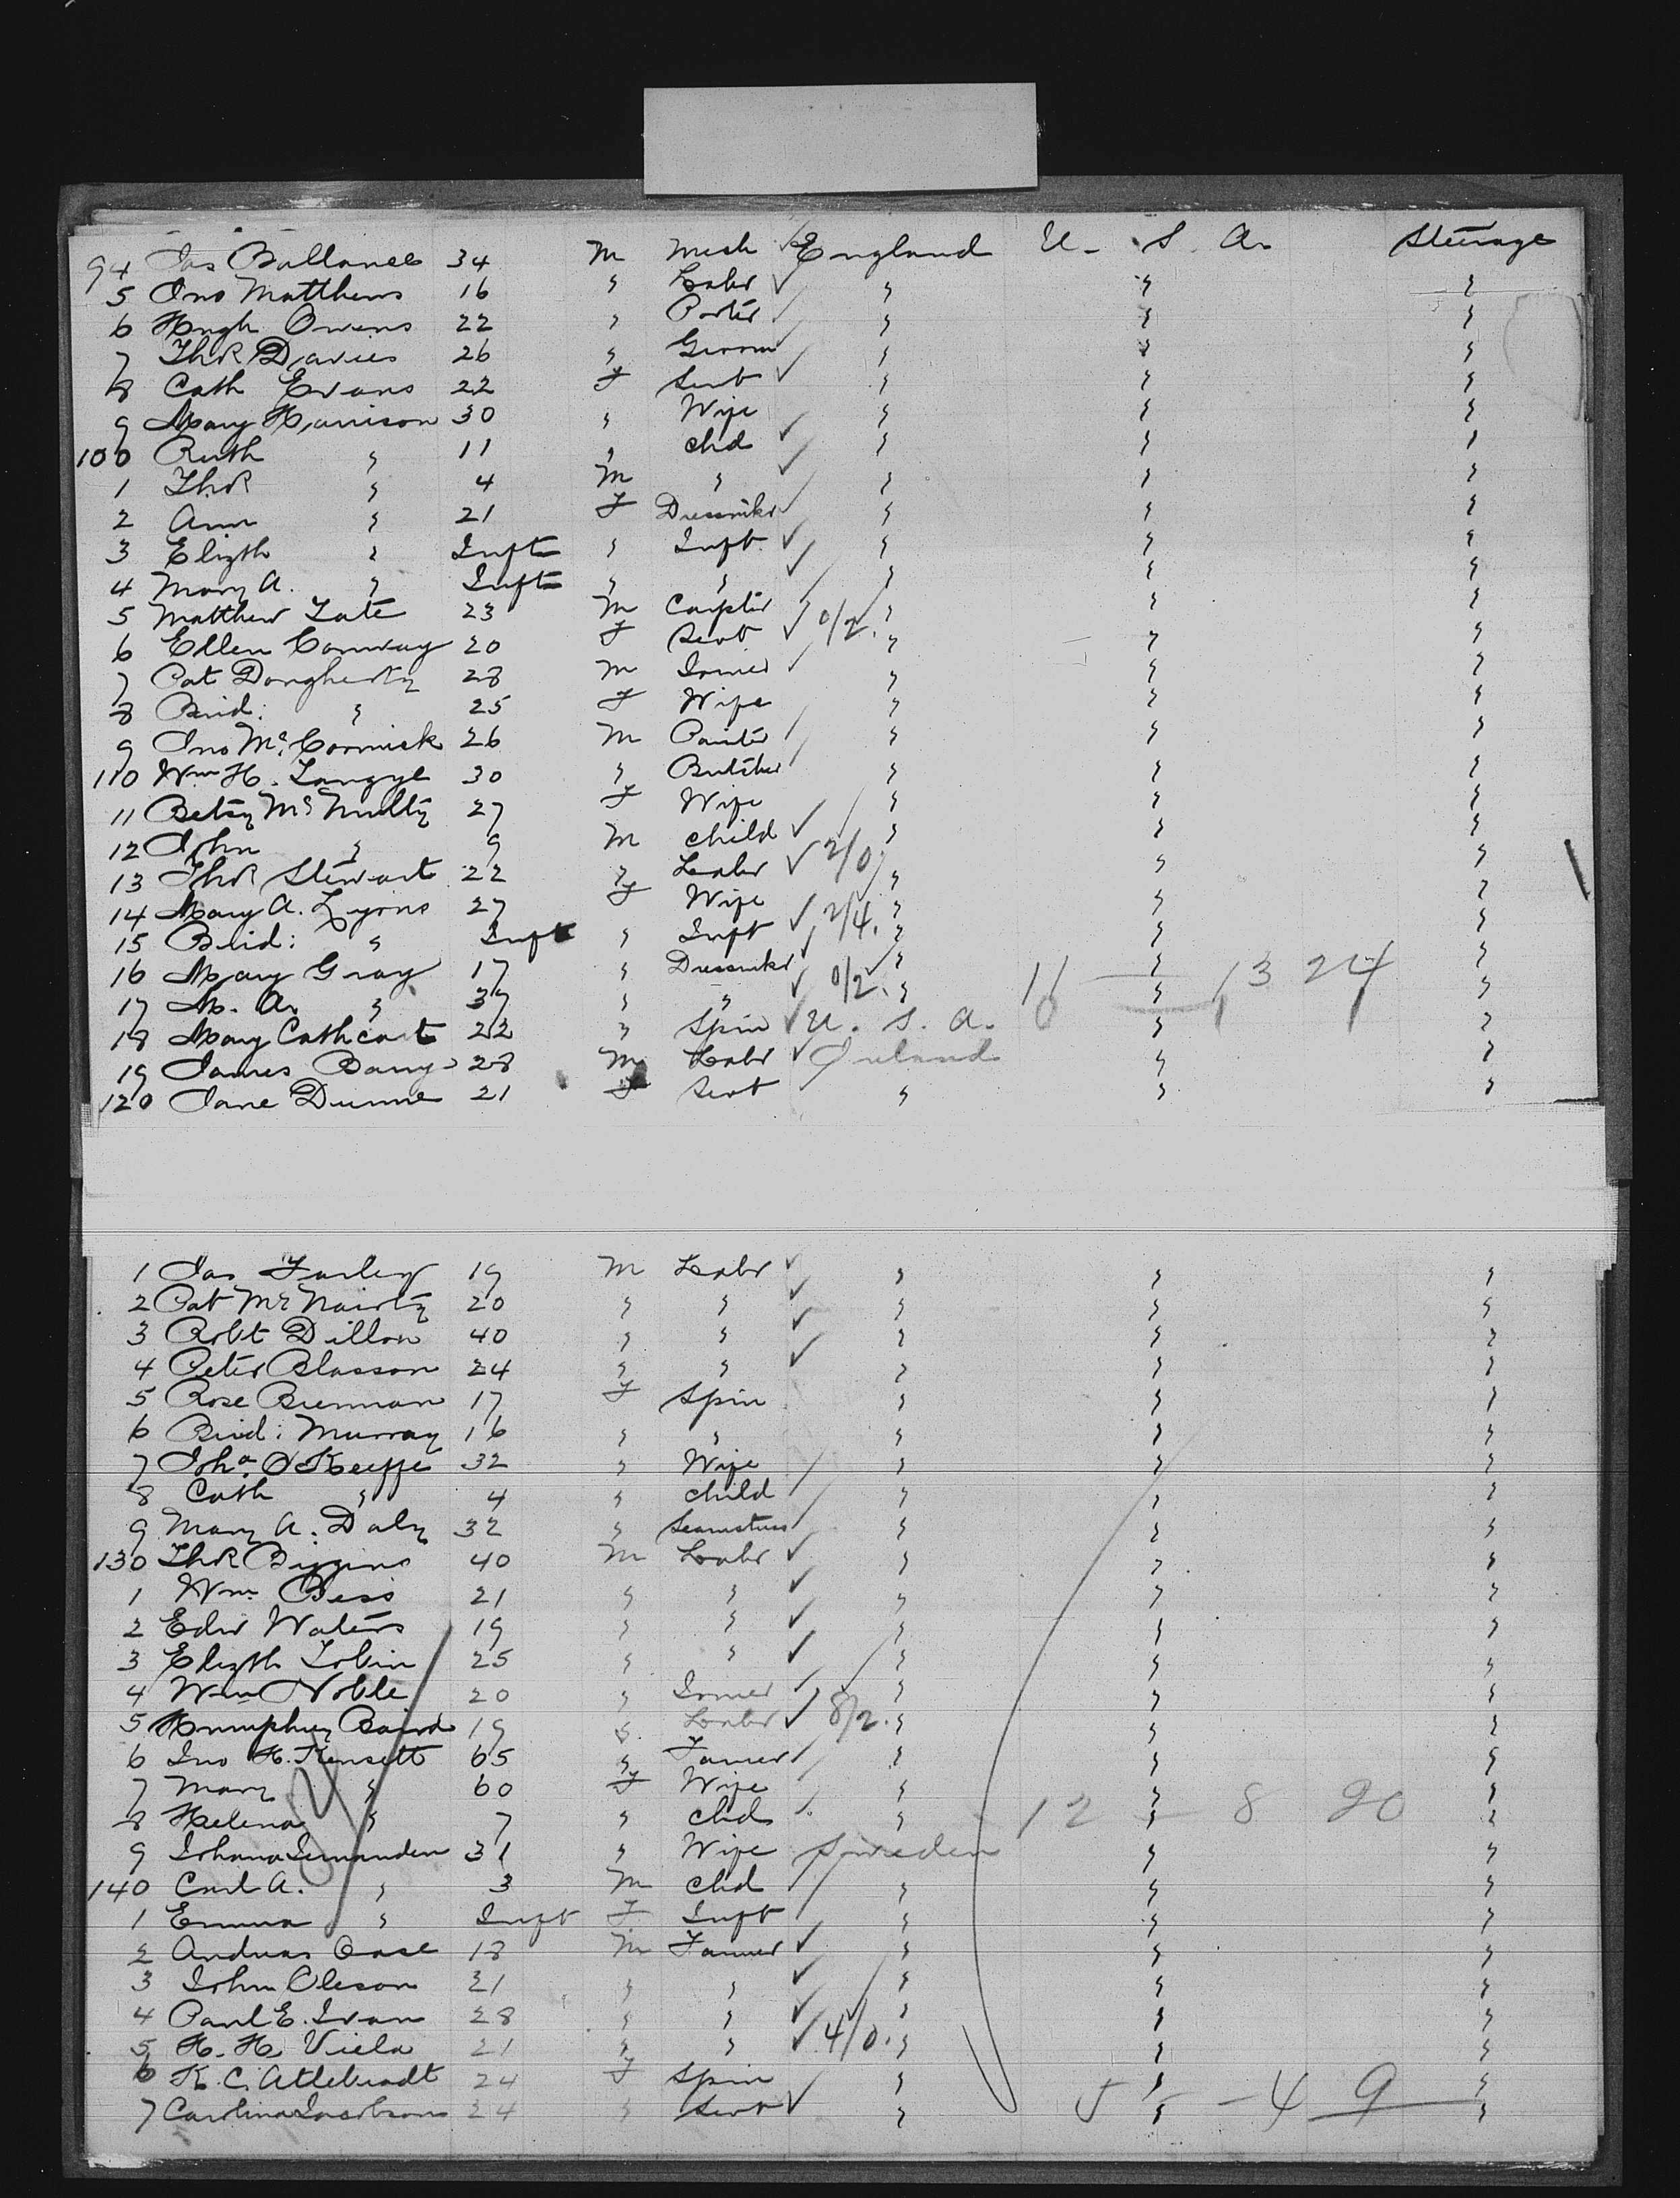 94 Jas Ballance 34 M Mech England U. S. A. Steerage
5 Jno Matthews 16 " Labr " " "
6 Hugh Owens 22 " Porter " " "
7 Thos Davies 26 " Groom " " "
8 Cath Evans 22 F Servt " " "
9 Mary Harrison 30 " Wife " " "
100 Ruth " 11 " chd " " "
1 Thos " 4 M " " " "
2 Ann " 21 F Dressmkr " " "
3 Elizth " Inft " Inft " " "
4 Mary A. " Inft " " " " "
5 Matthew Tate 23 M Carptr 0/2. " " "
6 Ellen Conway 20 F Servt " " "
7 Pat Dougherty 28 M Joiner " " "
8 Brid: " 25 F Wife " " "
9 Jno Mc.Cormick 26 M Painter " " "
110 Wm H. 30 " Butcher " " "
11 Betsy McNulty 27 F Wife " " "
12 John " 9 M child " " "
13 Thos Stewart 22 " Labr 2/0 " " "
14 Mary A. Lyons 27 F Wife " " "
15 Brid: " Inft " Inft 2/4. " " "
16 Mary Gray 17 " Dressmkr " " "
17 M. A. " 37 " " 0/2. " 11 — 13 24 " "
18 Mary Cathcart 22 " Spin U. S. A. " "
19 James Barry 28 M Labr Ireland " "
120 Jane Dunne 21 F Servt " " "
1 Jas Farley 19 M Labr " " "
2 Pat 20 " " " " "
3 Robt Dillon 40 " " " " "
4 Peter 24 " " " " "
5 Rose Brennan 17 F Spin " " "
6 Brid: Murray 16 " " " " "
7 Joha. O'Keeffe 32 " Wife " " "
8 Cath " 4 " child " " "
9 Mary A. Daly 32 " Seamstress " " "
130 Thos Biggins 40 M Labr " " "
1 Wm 21 " " " " "
2 Edw Waters 19 " " " " "
3 Elizth Tobin 25 " " " " "
4 Wm Noble 20 " Joiner " " "
5 Humphrey Baird 19 " Labr 8/2. " " "
6 Jno H. Kensett 65 " Farmer " " "
7 Mary " 60 F Wife " " "
8 Helena " 7 " chd " 12 — 8 20 " "
9 Johana 31 " Wife Sweden " "
140 Carl A. " 3 M chd " " "
1 Emma " Inft F Inft " " "
2 Andreas 18 M Farmer " " "
3 John Oleson 21 " " " " "
4 Paul E. 28 " " " " "
5 H. H. Viela 21 " " 4/0. " " "
6 K. C. 24 F Spin " " "
7 Carolina Jacobson 24 " Servt " 5 — 4 9 " "